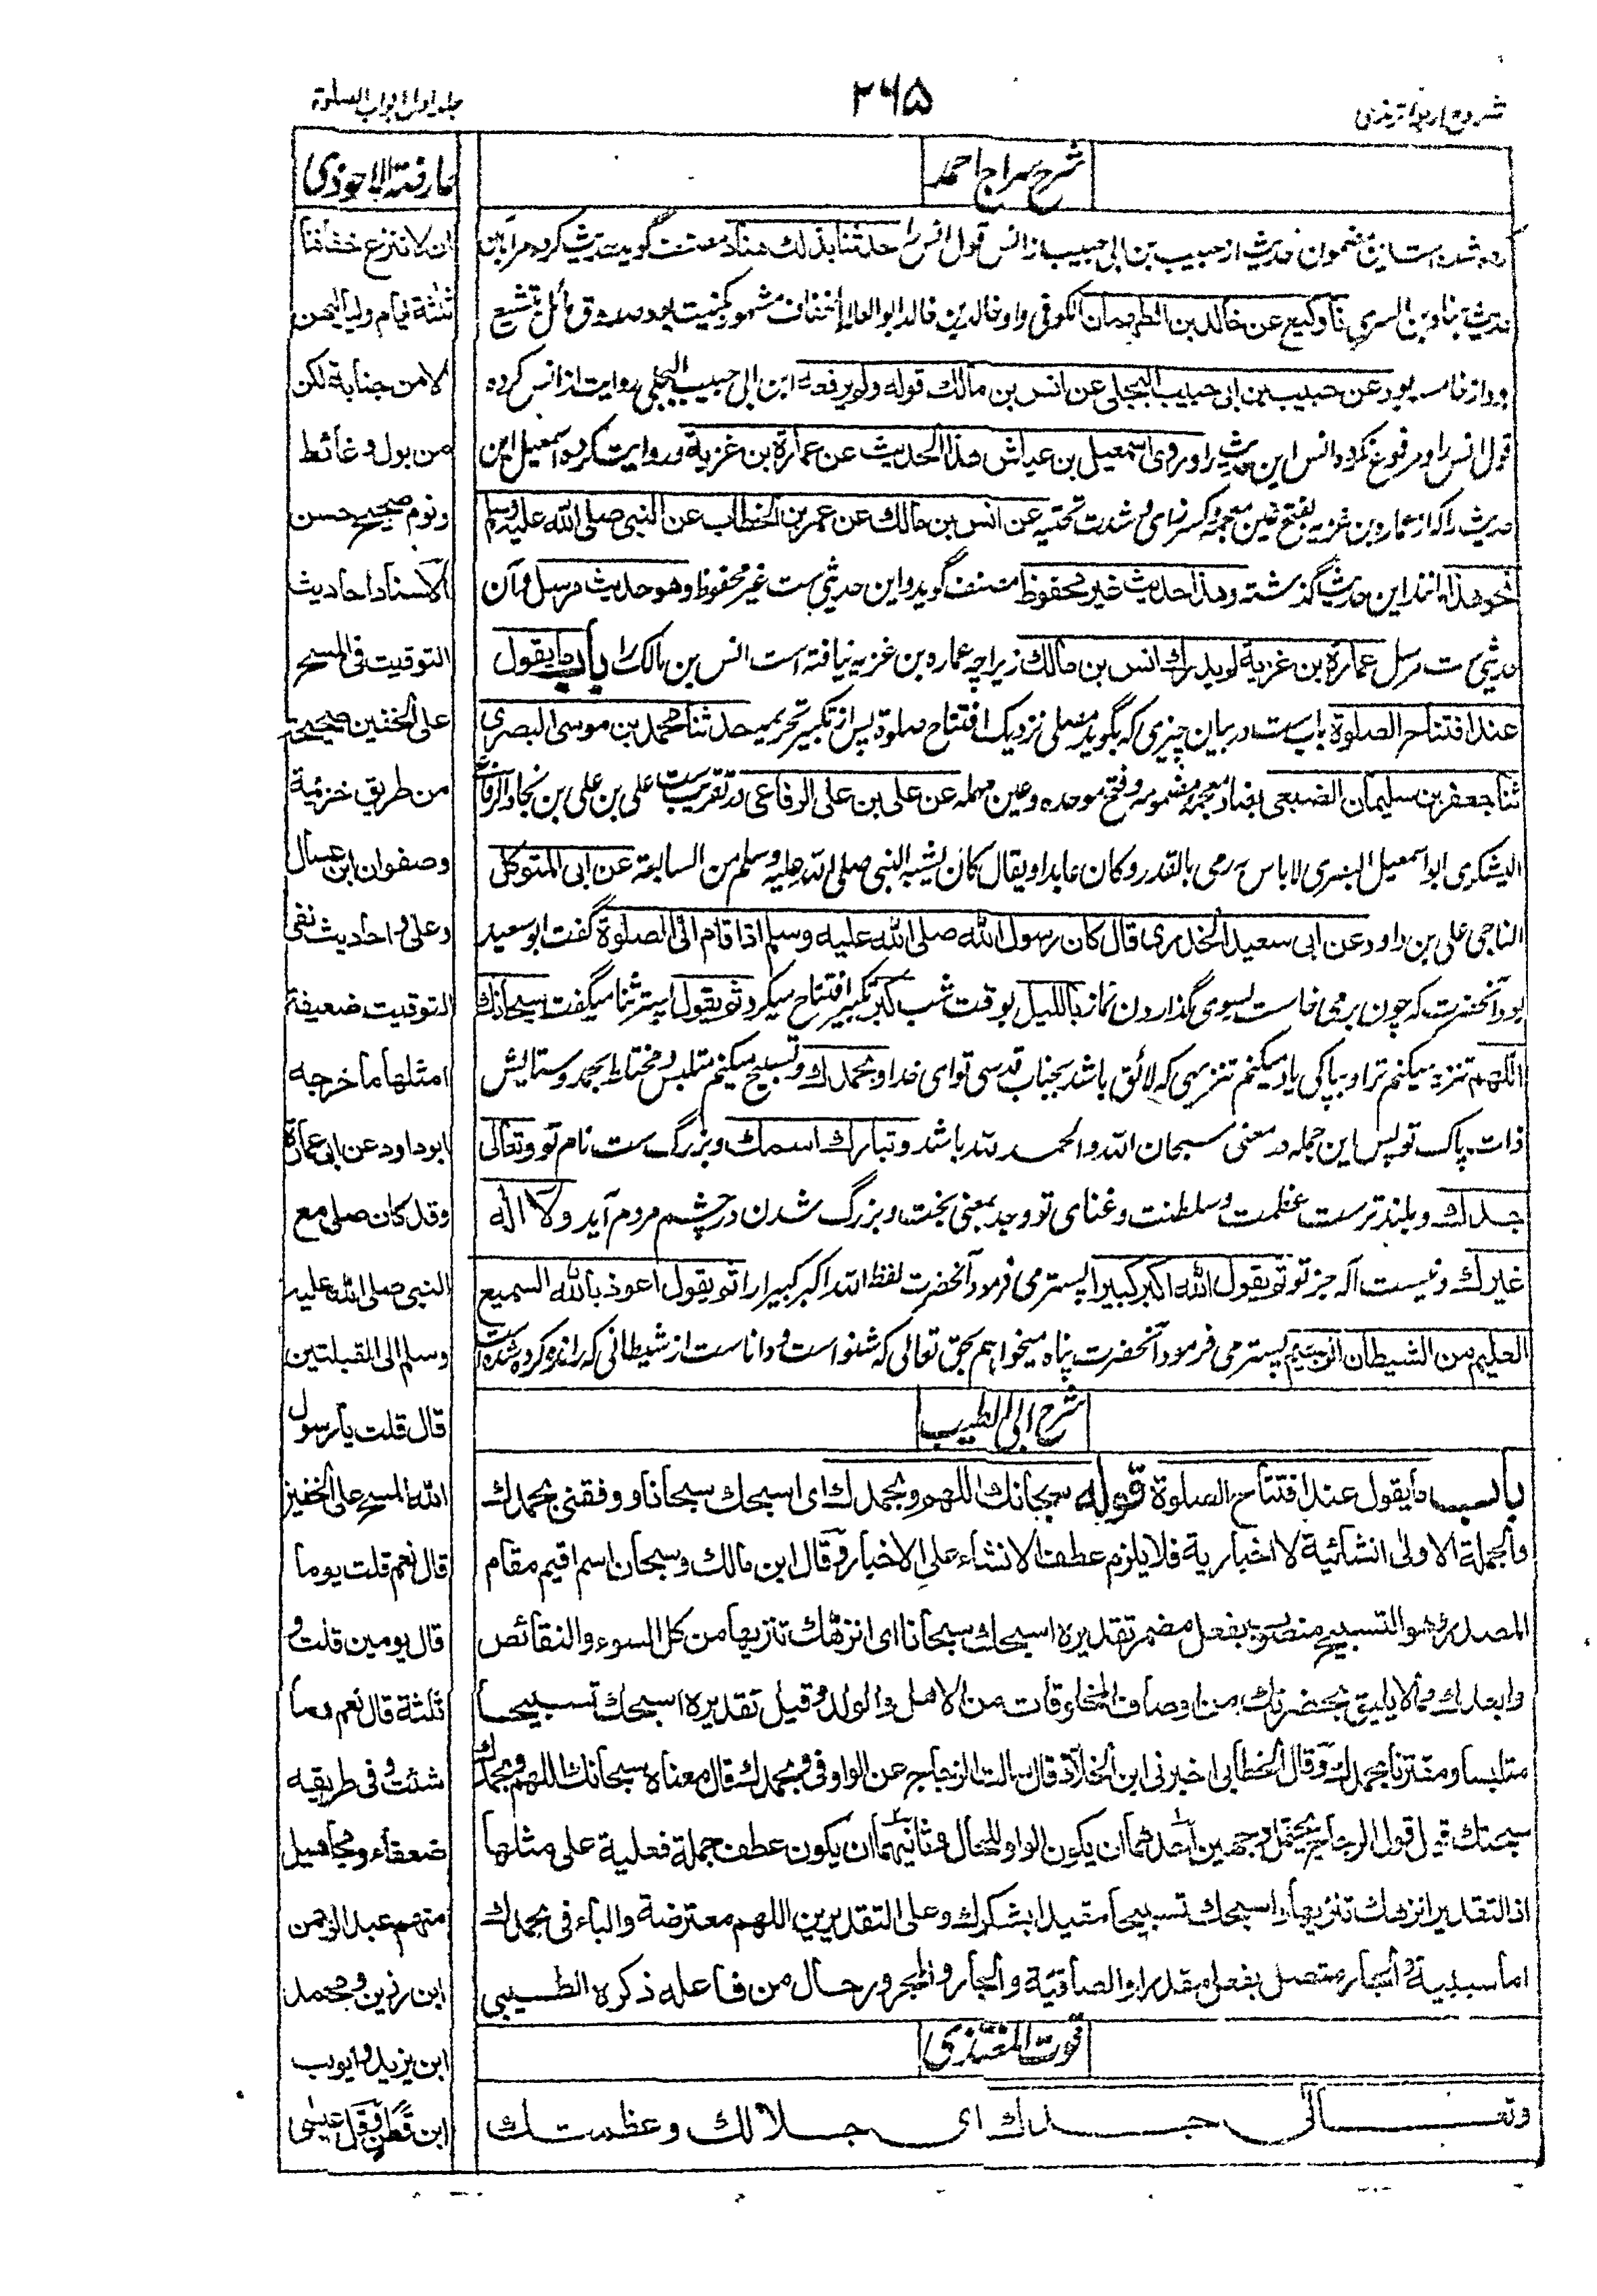 شروح اربعه ترمذی
۲۶۵
جلد اول ابواب الصلوة
شرح سراج احمد
شده است این مضمون حدیث از حبیب بن ابی حبیب از انس قول انس را حدثنا بذلك هناد مصنف گوید حدیث کرد مرا باین
حدیث هناد بن السری نا وكيع عن خالد بن طهمان الكوفی و او خالد بن خالد ابو العلاء الخفاف مشهور بکنیت بود صدوق مائل بتشیع
بود عن حبيب بن ابی حبيب البجلی عن انس بن مالك قوله ولم يرفعه ابن ابی حبیب البجلی روایت از انس کرده
قول انس را و مرفوع نکرده انس این حدیث را وروى اسمعيل بن عياش هذا الحديث عن عمارة بن غزية و روایت کرده اسمعیل این
حدیث را که از عماره بن غزیه بفتح غین معجمه و کسر زای و شدت تحتیه عن انس بن مالك عن عمر بن الخطاب عن النبي صلى الله عليه وسلم
نحو هذا مانند این حدیث گذشته وهذا حديث غير محفوظ مصنف گوید و این حدیثی ست غیر محفوظ وهو حديث مرسل و آن
حدیثی ست مرسل عمارة بن غزية لم يدرك انس بن مالك زیرا چه عماره بن غزیه نیافته است انس بن مالک را باب ما يقول
عند افتتاح الصلوة باب ست در بیان چیزی که بگوید مصلی نزدیک افتتاح صلوة پس از تکبیر تحریمه حدثنا محمد بن موسى البصری
ثنا جعفر بن سليمان الضبعی بضاد معجمه مضمومه و فتح موحده و عین مهمله عن علی بن علی الرفاعی در تقریب ست علی بن علی بن نجاد الرفاعی
الیشکری ابو اسمعیل البصری لا باس به رمی بالقدر و کان عابدا و یقال کان یشبه النبی صلی الله علیه وسلم من السابعة عن ابی المتوكل
الناجی علی بن داود عن ابی سعيد الخدری قال كان رسول الله صلى الله عليه وسلم اذا قام الى الصلوة گفت ابو سعید
بود آنحضرت که چون بر می خاست بسوی گذاردن نماز بالليل بوقت شب كبر تکبیر افتتاح میکرد ثم يقول پستر ثنا میگفت سبحانك
اللهم تنزیه میکنم ترا و بپاکی یاد میکنم تنزیهی که لائق باشد بجناب قدسی تو ای خدا وبحمدك و تسبیح میکنم متلبس و مختلط بحمد و ستایش
ذات پاک تو پس این جمله در معنی سبحان الله و الحمد لله باشد وتبارك اسمك و بزرگ ست نام تو وتعالى
جدك و بلند ترست عظمت و سلطنت و غنای تو و جد بمعنی بخت و بزرگ شدن در چشم مردم آید ولا اله
غيرك و نیست اله جز تو ثم يقول الله اكبر كبيرا پستر می فرمود آنحضرت لفظ الله اکبر کبیرا را ثم يقول اعوذ بالله السميع
العليم من الشيطان الرجيم پستر می فرمود آنحضرت پناه میخواهم بحق تعالی که شنواست و داناست از شیطانی که رانده کرده شده است
شرح ابی الطیب
باب ما يقول عند افتتاح الصلوة قوله سبحانك اللهم وبحمدك اى اسبحك سبحانا ووفقنى بحمدك
والجملة الاولى انشائية لا اخبارية فلا يلزم عطف الانشاء على الاخبار وقال ابن مالك وسبحان اسم اقيم مقام
المصدر وهو التسبيح منصوب بفعل مضمر تقديره اسبحك سبحانا اى انزهك تنزيها من كل السوء والنقائص
وابعدك مالا يليق بحضرتك من اوصاف المخلوقات من الاهل والولد وقيل تقديره اسبحك تسبيحا
متلبسا ومقترنا بحمدك وقال الخطابى اخبرنى ابن الخلاد قال سالت الزجاج عن الواو فى وبحمدك قال معناه سبحانك اللهم وبحمدك
سبحتك قيل قول الزجاج يحتمل وجهين احدهما ان يكون الواو للحال وثانيهما ان يكون عطف جملة فعلية على مثلها
اذ التقدير انزهك تنزيها واسبحك تسبيحا مقيدا بشكرك وعلى التقديرين اللهم معترضة والباء فى بحمدك
اما سببية والجار متصل بفعل مقدر او الصاقية والجار والمجرور حال من فاعله ذكره الطيبى
قوت المغتذی
وتعالى جدك اى جلالك وعظمتك
عارضة الاحوذی
ان لا ننزع خفافنا
ثلثة ايام ولياليهن
الا من جنابة لكن
من بول وغائط
ونوم صحيح حسن
الاسناد احاديث
التوقيت فى المسح
على الخفين صحيحة
من طريق خزيمة
وصفوان ابن عسال
وعلى واحاديث نفى
التوقيت ضعيفة
امثلها ما خرجه
ابو داود عن ابى عمارة
وقد كان صلى مع
النبى صلى الله عليه
وسلم الى القبلتين
قال قلت يا رسول
الله المسح على الخفين
قال نعم قلت يوما
قال يومين قلت و
ثلثة قال نعم وما
شئت وفى طريقه
ضعفاء ومجاهيل
منهم عبد الرحمن
ابن رزين ومحمد
ابن يزيد وايوب
ابن قطن